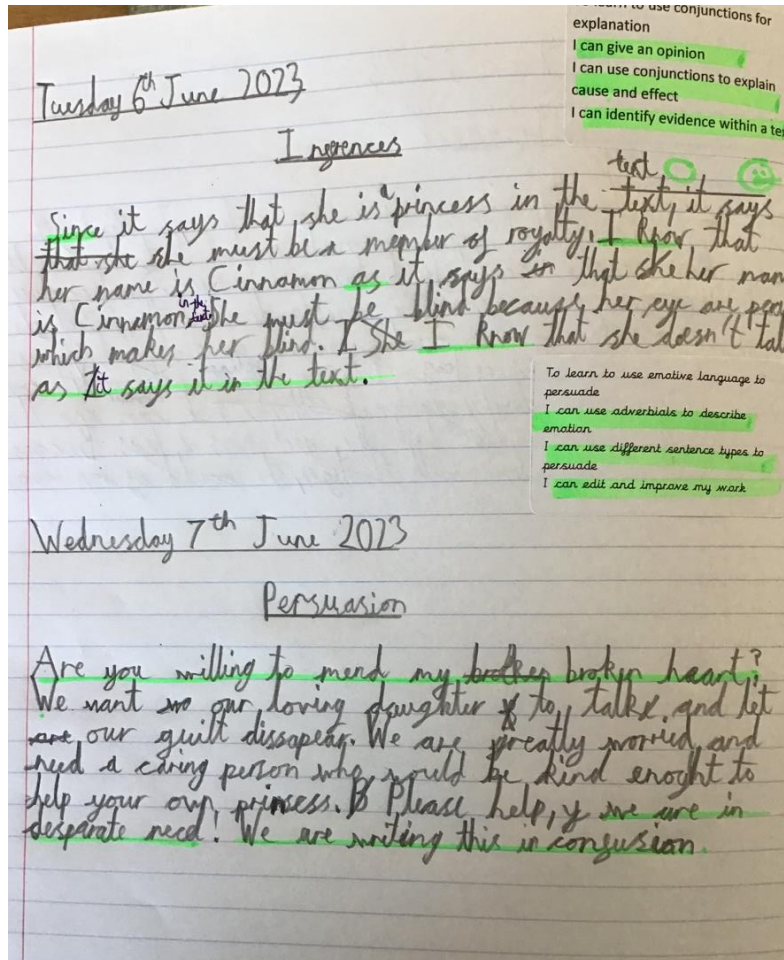 to learn to use conjunctions for
explanation
I can give an opinion
I can use conjunctions to explain
cause and effect
I can identify evidence within a te
Tuesday 6th June 2023
Infrences
text
Since it says that she is a princess in the text, it says
that she she must be a member of royalty. I know that
her name is Cinnamon as it says in that she her nam
is Cinnamon in the text. She must be blind because her eye are pear
which makes her blind. I She I know that she doesn't tal
as it says it in the text.
To learn to use emotive language to
persuade
I can use adverbials to describe
emotion
I can use different sentence types to
persuade
I can edit and improve my work
Wednesday 7th June 2023
Persuasion
Are you willing to mend my broken brokin heart?
We want our loving daughter to talk and let
are our guilt dissapear. We are greatly worried and
need a caring person who would be kind enoght to
help your own prinsess. Please help, we are in
desparate need! We are writing this in confusion.